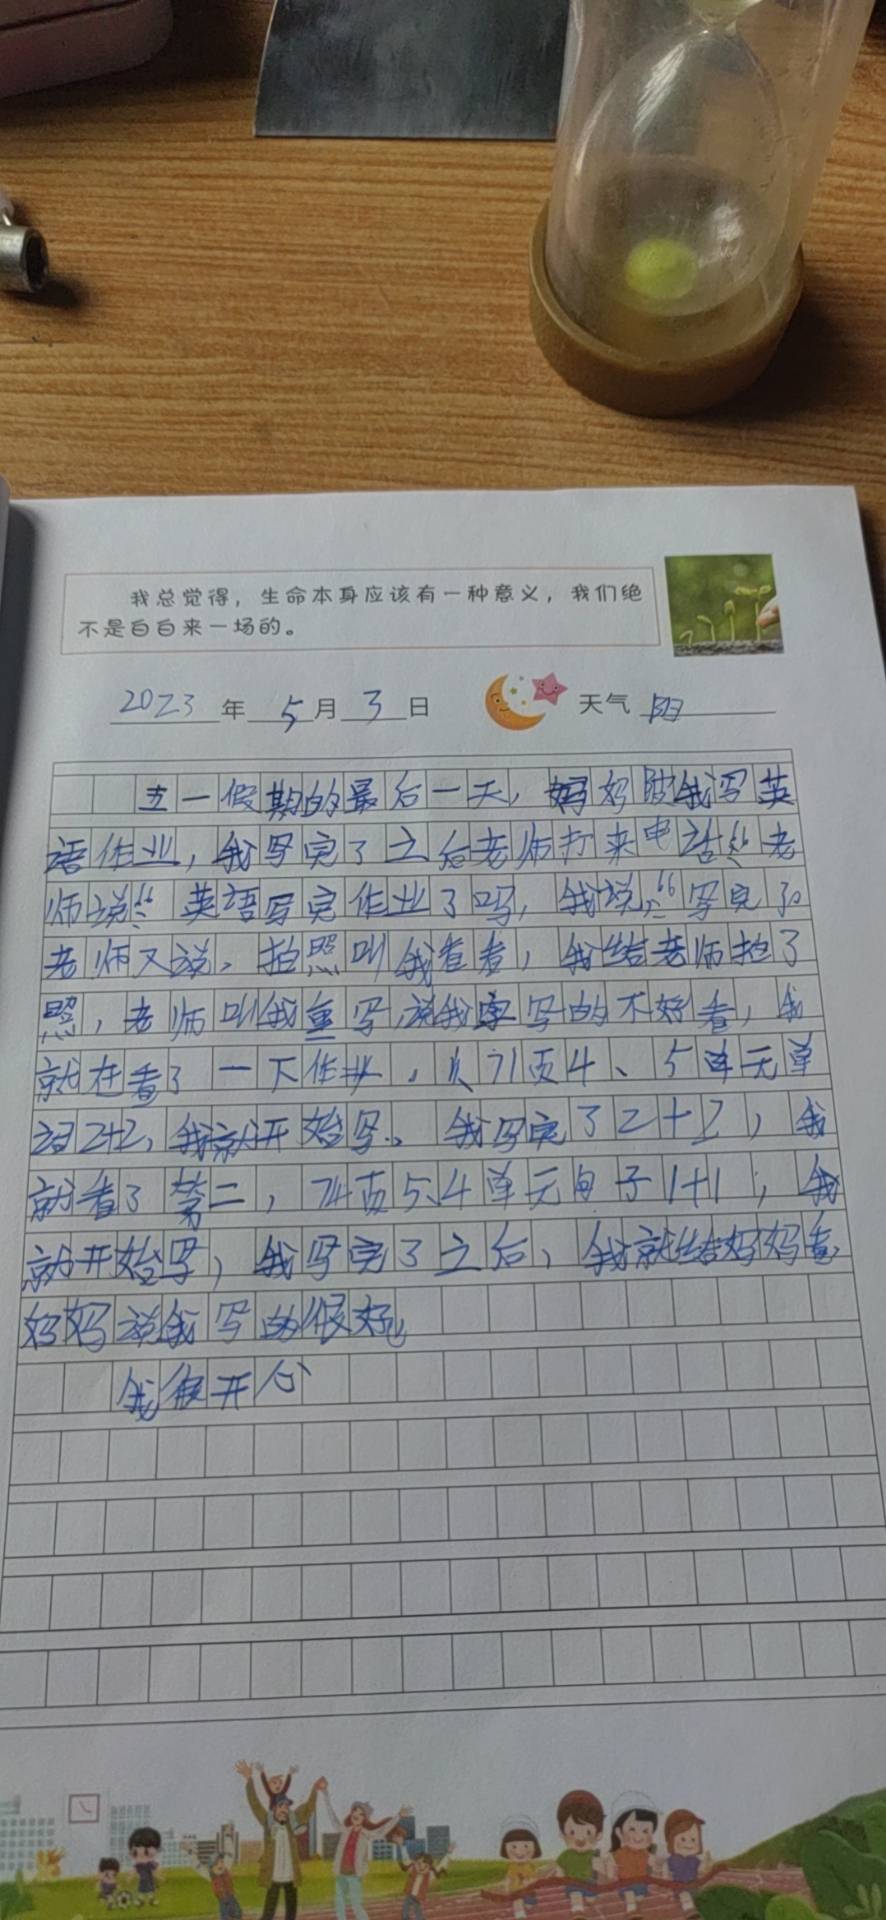 我总觉得，生命本身应该有一种意义，我们绝
不是白白来一场的。
2023年5月3日 天气 阳
五一假期的最后一天，妈妈陪我写英
语作业，我写完了之后老师打来电话：老
师说：“英语写完作业了吗，我说：“写完了。
老师又说。拍照叫我看看，我给老师拍了
照，老师叫我重写，说我字写的不好看，我
就在看了一下作业，71页4、5单元单
词2+2，我就开始写。我写完了2+2，我
就看了第二，74页5、4单元句子1+1，我
就开始写，我写完了之后，我就给妈妈看，
妈妈说我写的很好。
我很开心